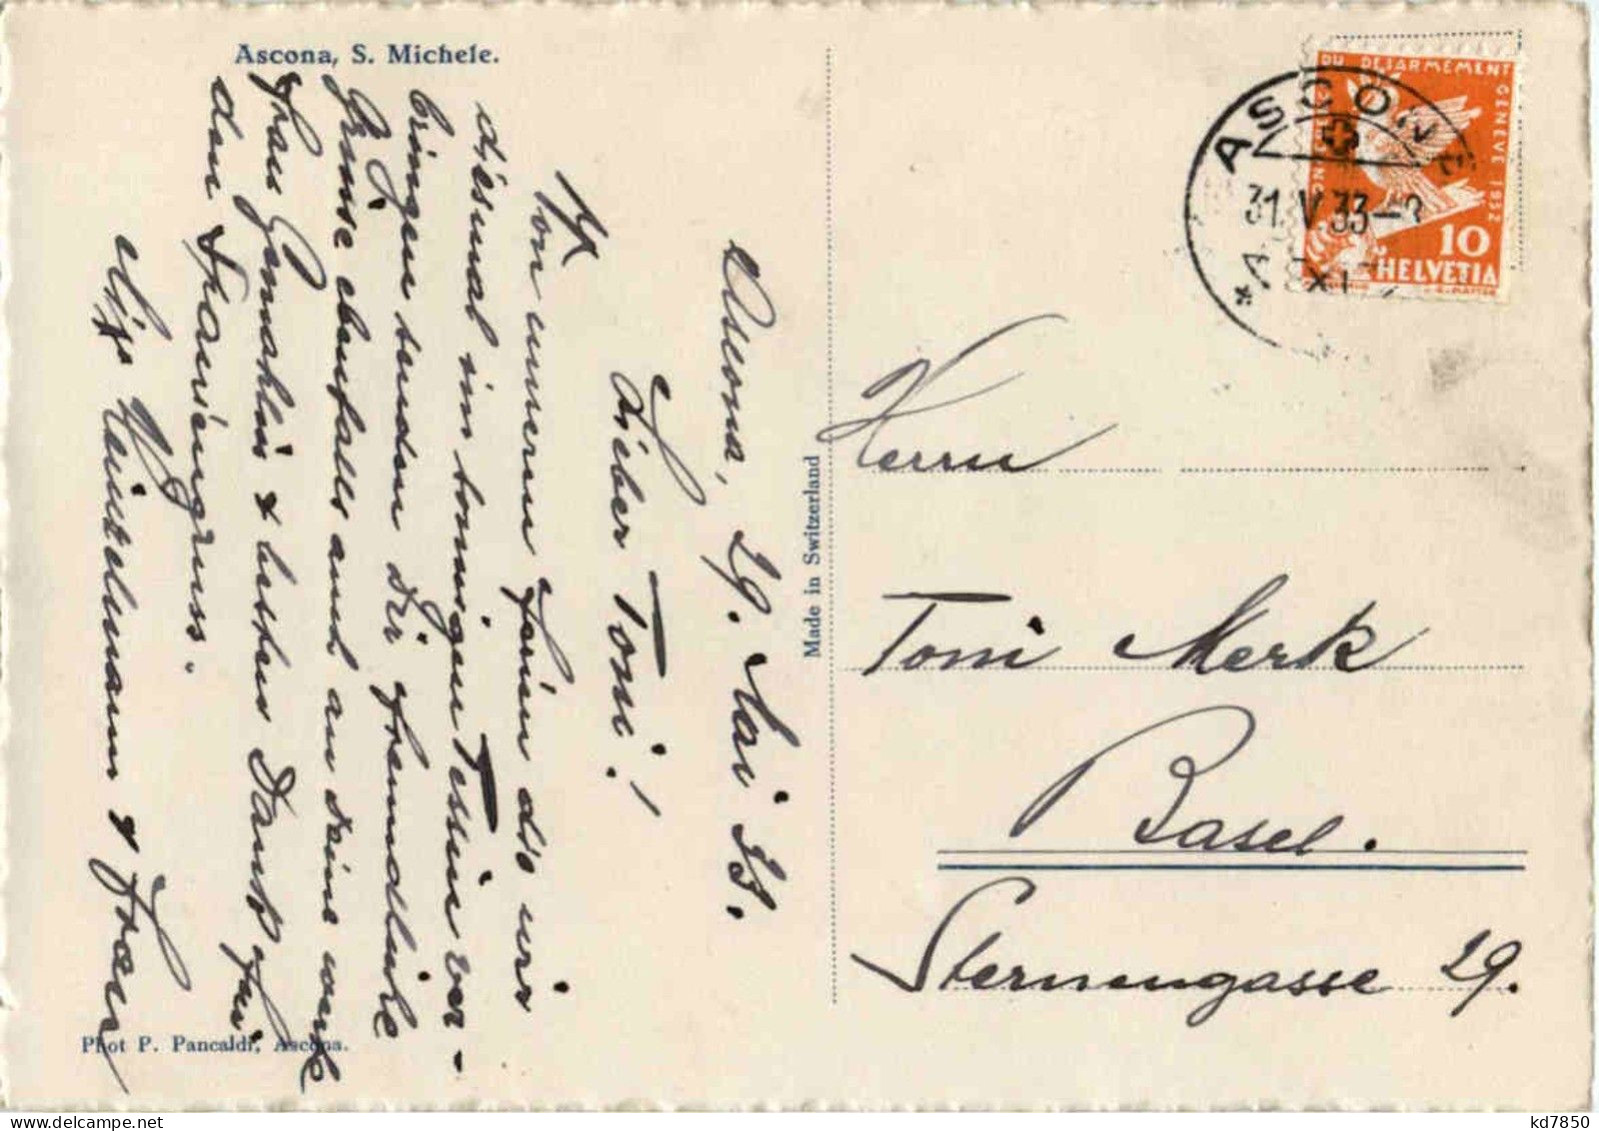 Ascona, S. Michele.
Ascona, 29. Mai 33.
Lieber Toni!
Von unsern Ferien die wir
diesmal im sonnigen Tessin ver-
bringen senden Dir freundliche
Grüsse ebenfalls auch an Deine werte
Frau Gemahlin & besten Dank für
den Feriengruss.
Heintzelmann & Frau
Phot P. Pancaldi, Ascona.
Made in Switzerland
ASCONA
31.V.33
DU DESARMEMENT
GENEVE 1932
10
HELVETIA
Herrn
Toni Merk
Basel.
Sternengasse 29.
kd7850